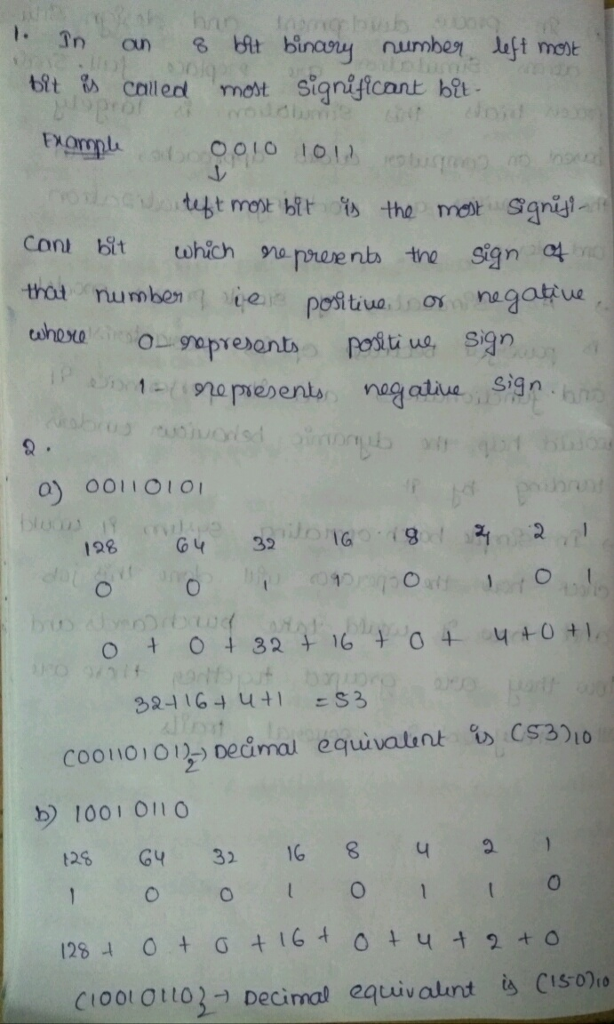 1. In an 8 bit binary number left most
bit is called most significant bit.
Example 0010 1011
↓
left most bit is the most signifi-
cant bit which represents the sign of
that number ie positive or negative
where 0 - represents positive sign
1 - represents negative sign.
2.
a) 00110101
128 64 32 16 8 4 2 1
0 0 1 1 0 1 0 1
0 + 0 + 32 + 16 + 0 + 4 + 0 + 1
32+16+4+1 = 53
(00110101)2 → Decimal equivalent is (53)10
b) 1001 0110
128 64 32 16 8 4 2 1
1 0 0 1 0 1 1 0
128 + 0 + 0 + 16 + 0 + 4 + 2 + 0
(10010110)2 → Decimal equivalent is (150)10